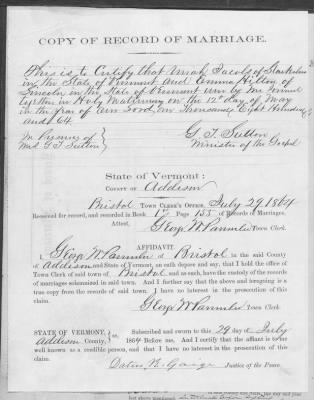 COPY OF RECORD OF MARRIAGE.
This is to Certify that Uriah Jacobs of Starksboro
in the State of Vermont and Emma Hilton of
Lincoln in the State of Vermont were by me Joined
together in Holy Matrimony on the 12th day of May
in the year of our Lord, one thousand Eight Hundred
and 64.
In Presence of
Mrs G. F. Sutton
G. F. Sutton
Minister of the Gospel
State of Vermont:
COUNTY OF Addison
Bristol TOWN CLERK'S OFFICE, July 29 1864
Received for record, and recorded in Book 1st Page 155 of Records of Marriages.
Attest, Geo W Parmlee Town Clerk.
AFFIDAVIT.
I, Geo W Parmlee of Bristol in the said County
of Addison and State of Vermont, on oath depose and say, that I hold the office of
Town Clerk of said town of Bristol and as such, have the custody of the records
of marriages solemnized in said town. And I further say that the above and foregoing is a
true copy from the records of said town. I have no interest in the prosecution of this
claim.
Geo W Parmlee Town Clerk.
STATE OF VERMONT, } ss. Subscribed and sworn to this 29 day of July
Addison County, 1864 Before me. And I certify that the affiant is to me
well known as a credible person, and that I have no interest in the prosecution of this
claim.
Justice of the Peace